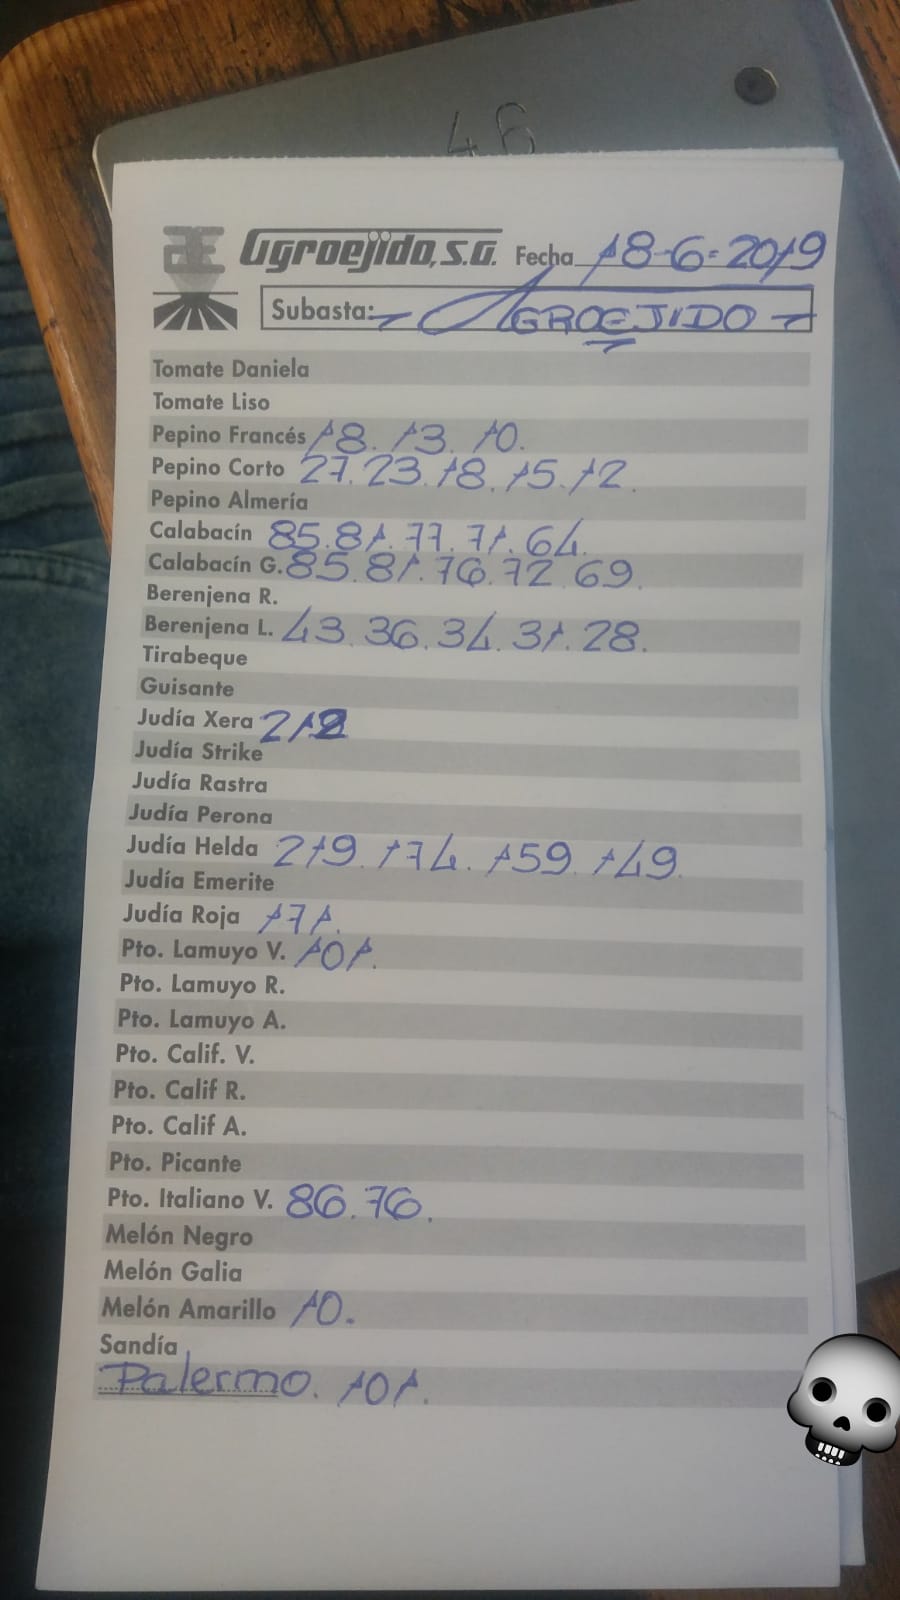 46
Agroejido, S.A. Fecha 18-6-2019
Subasta: AGROEJIDO
Tomate Daniela
Tomate Liso
Pepino Francés 18. 13. 10.
Pepino Corto 27. 23. 18. 15. 12.
Pepino Almería
Calabacín 85. 81. 77. 71. 64.
Calabacín G. 85. 81. 76. 72. 69.
Berenjena R.
Berenjena L. 43. 36. 34. 31. 28.
Tirabeque
Guisante
Judía Xera 212
Judía Strike
Judía Rastra
Judía Perona
Judía Helda 219. 174. 159. 149.
Judía Emerite
Judía Roja 171.
Pto. Lamuyo V. 101.
Pto. Lamuyo R.
Pto. Lamuyo A.
Pto. Calif. V.
Pto. Calif R.
Pto. Calif A.
Pto. Picante
Pto. Italiano V. 86. 76.
Melón Negro
Melón Galia
Melón Amarillo 10.
Sandía
Palermo. 101.